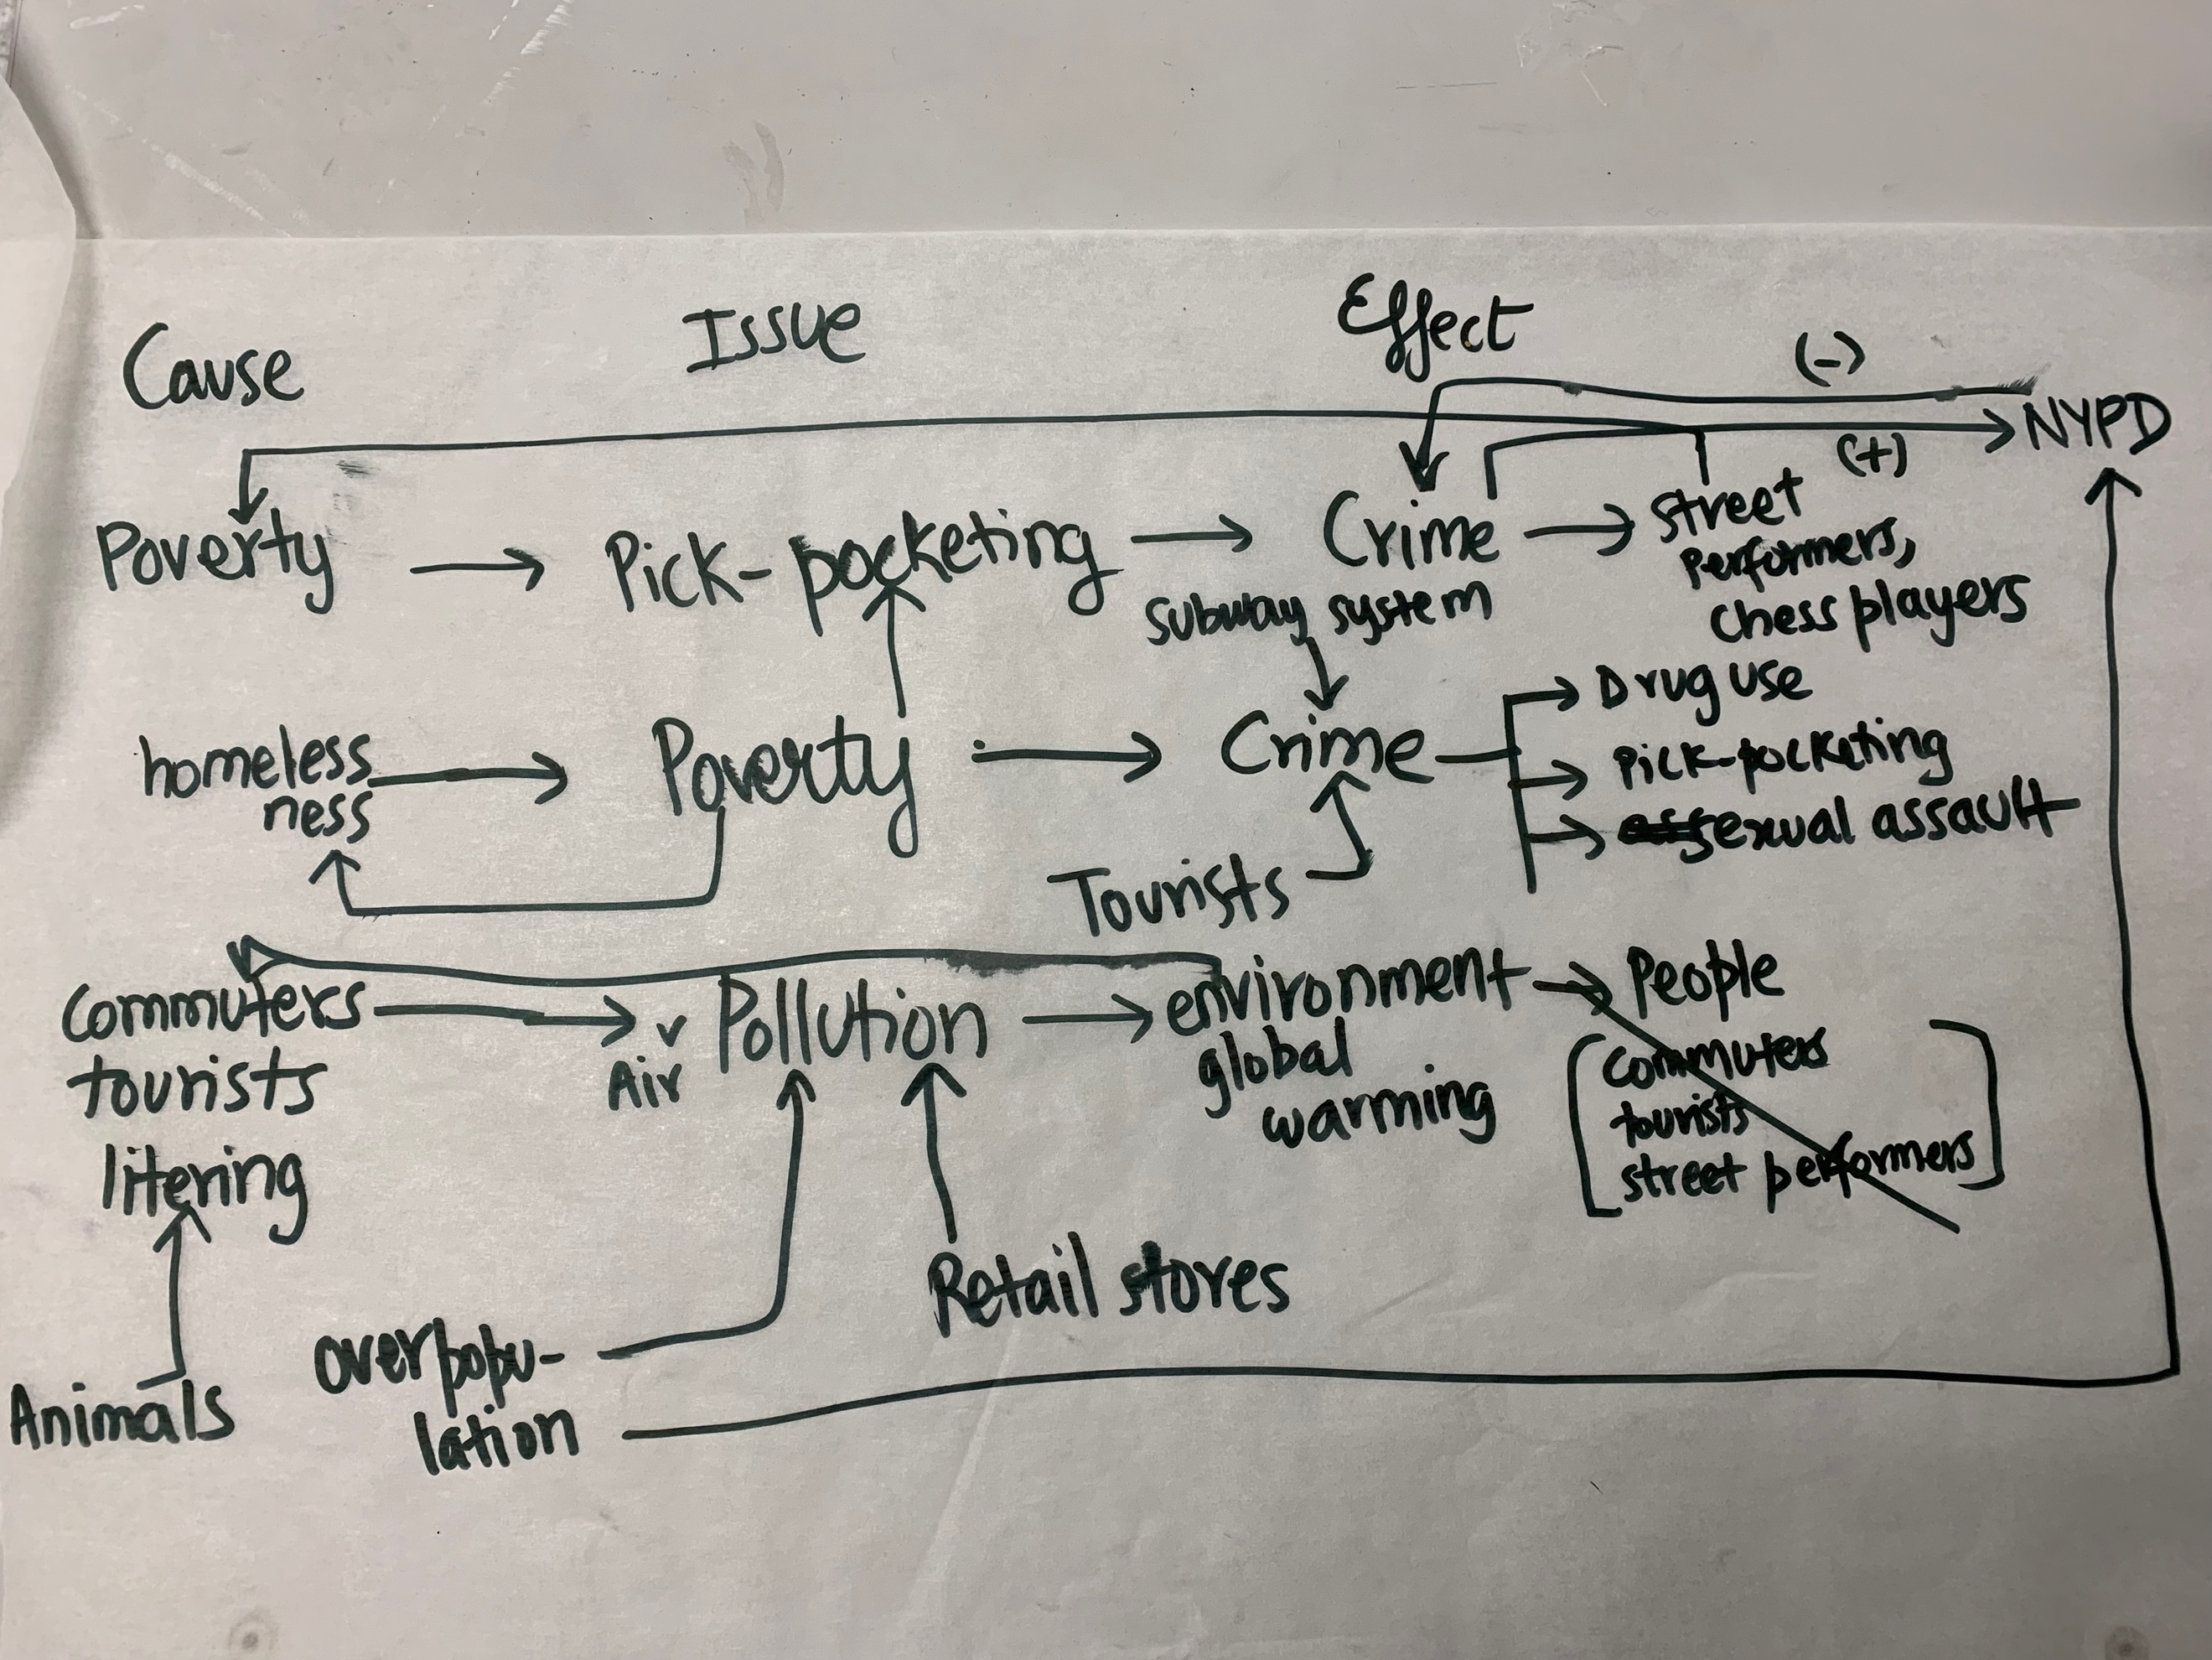 Cause
Issue
Effect
(-)
NYPD
(+)
Poverty
Pick-pocketing
Crime
street
performers,
chess players
subway system
homeless
ness
Poverty
Crime
Drug use
Pick-pocketing
sexual assault
Tourists
commuters
tourists
litering
Air
Pollution
environment
global
warming
People
commuters
tourists
street performers
Retail stores
Animals
overpopu-
lation